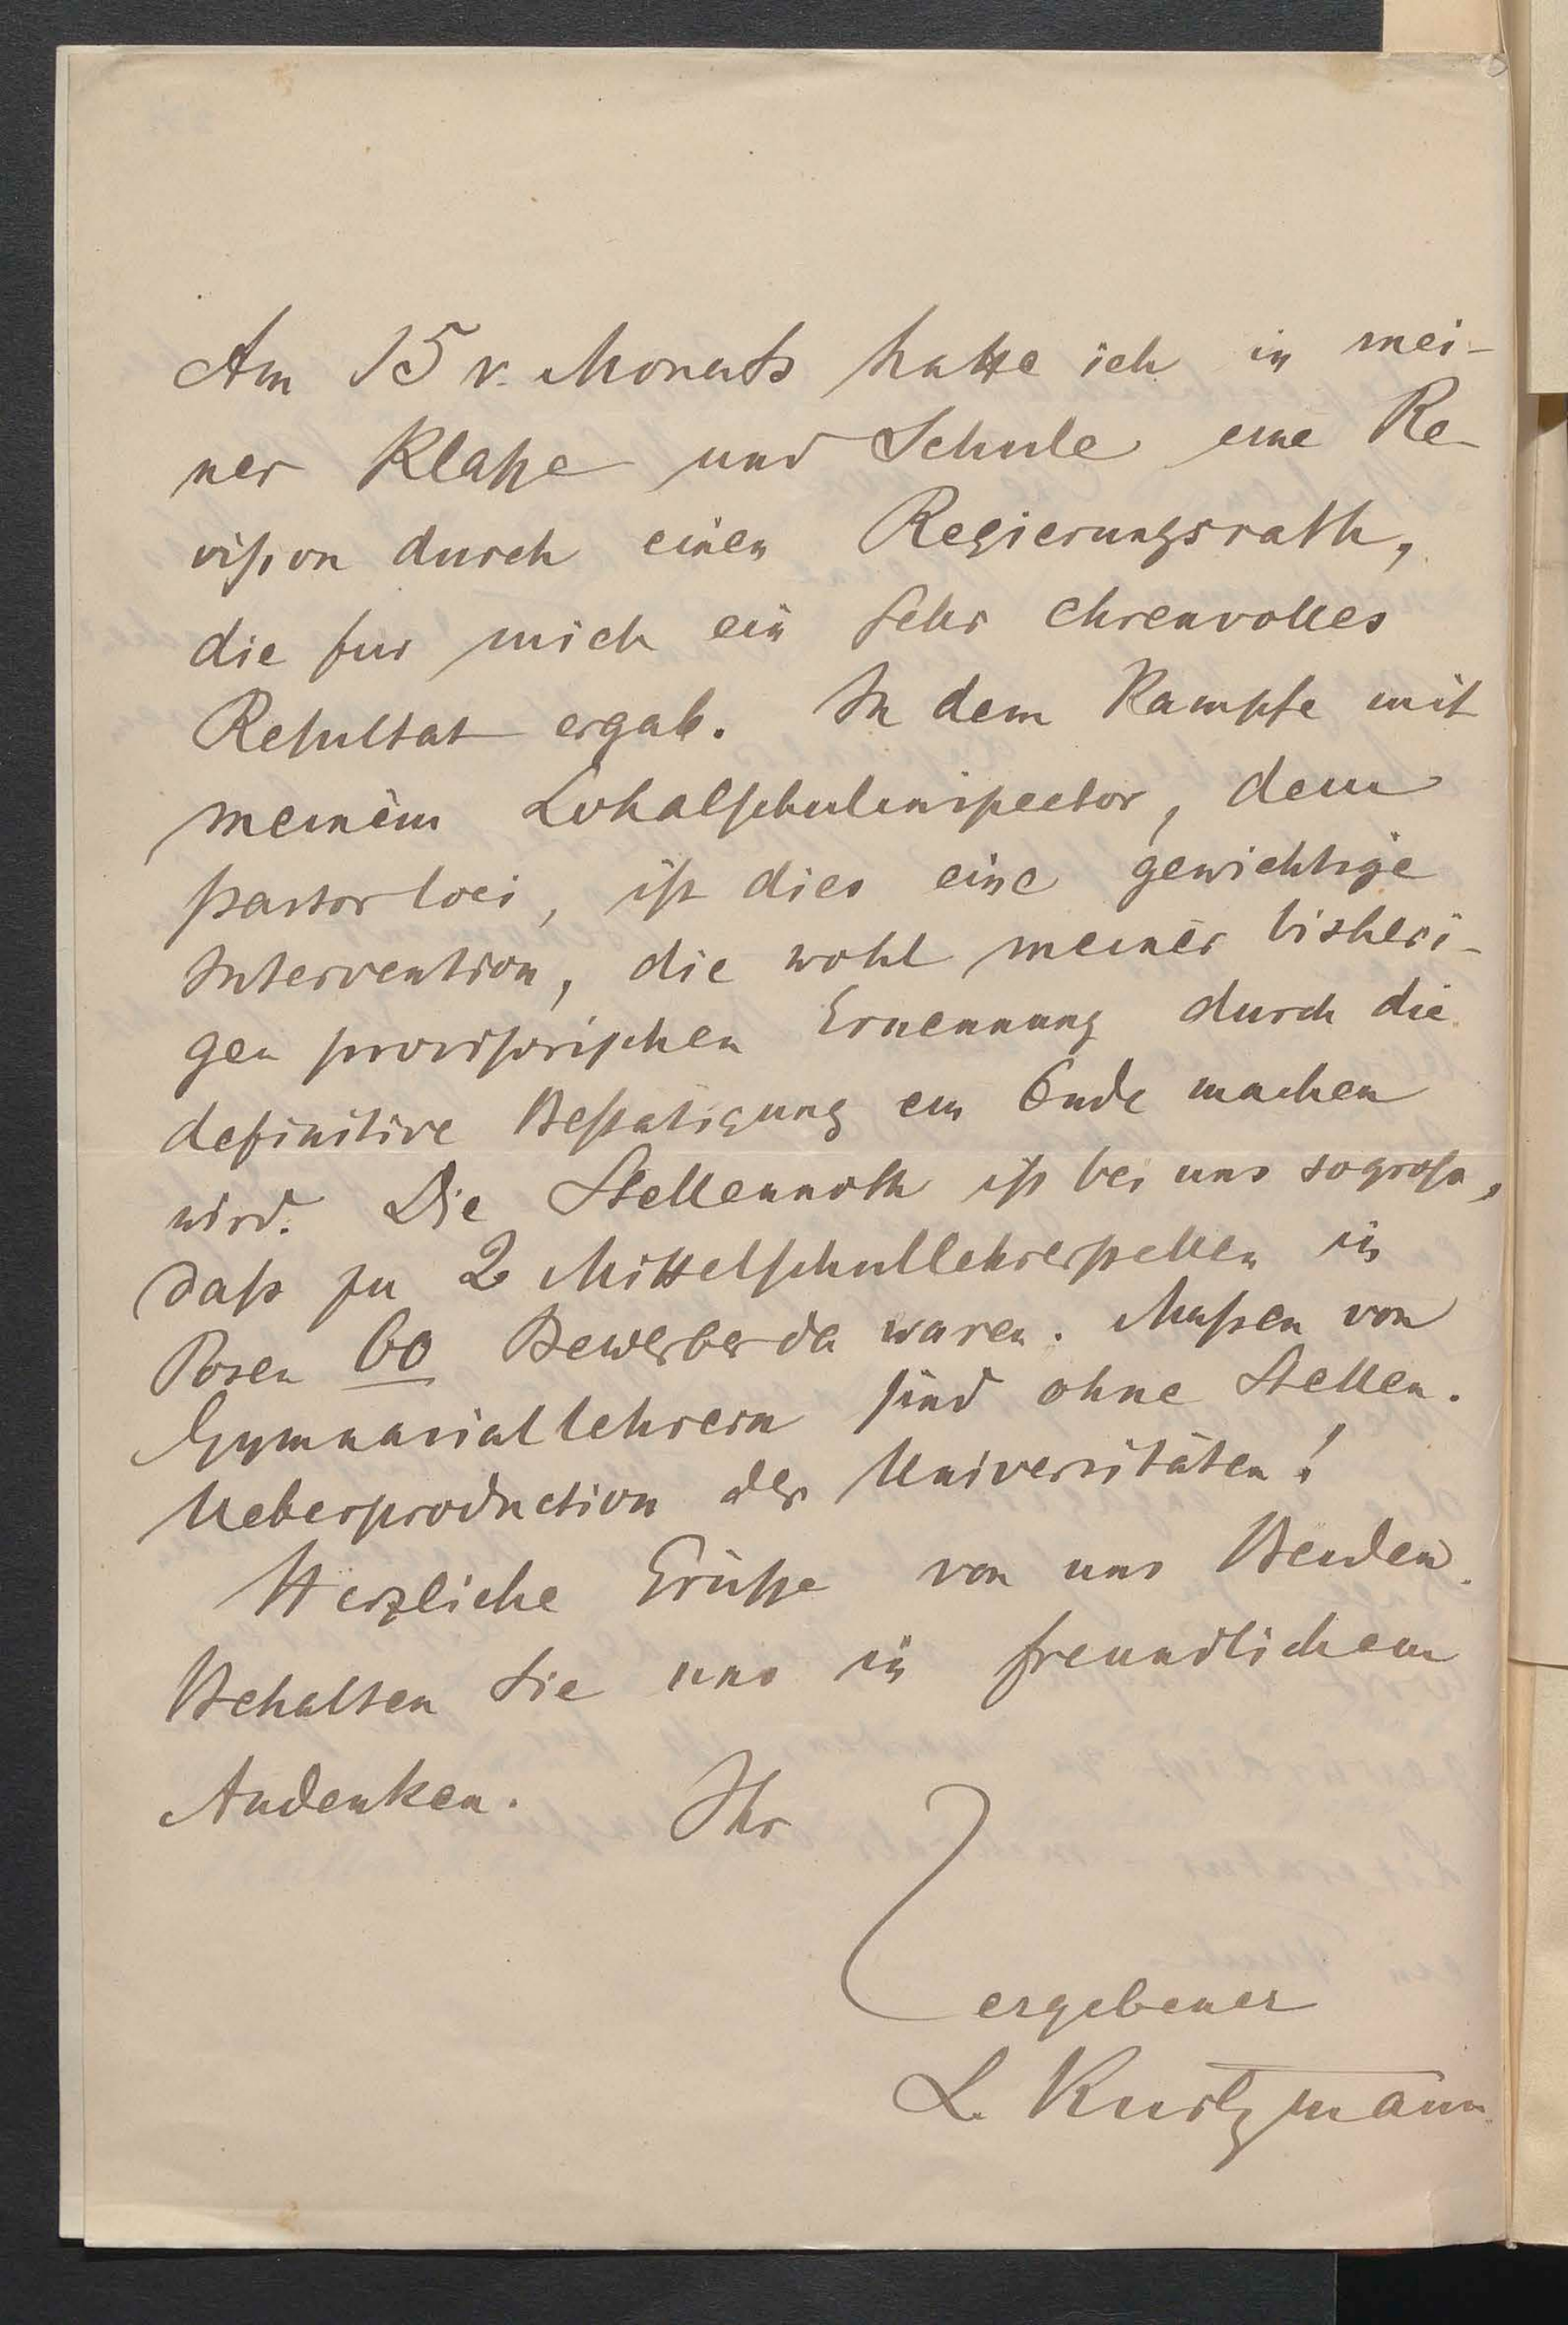 Am 15 v. Monats hatte ich in mei-
ner Klaße und Schule eine Re-
vision durch einen Regierungsrath,
die fur mich ein sehr ehrenvolles
Resultat ergab. In dem Kampfe mit
meinem Lokalschulinspector, dem
pastor loci, ist dies eine gewichtige
Intervention, die wohl meiner bisheri-
gen provisorischen Ernennung durch die
definitive Bestatigung ein Ende machen
wird. Die Stellennoth ist bei uns so groß,
daß zu 2 Mittelschullehrerstellen in
Posen 60 Bewerber da waren. Maßen von
Gymnasiallehrern sind ohne Stellen.
Ueberproduction der Universitäten!
Herzliche Grüße von uns Beiden.
Behalten Sie uns in freundlichem
Andenken. Ihr
ergebener
L. Kurtzmann